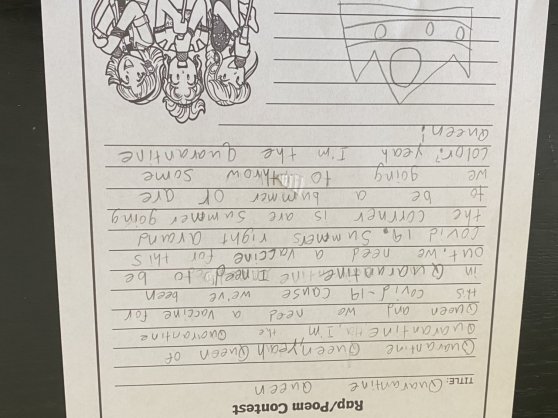 Rap/Poem Contest
TITLE: Quarantine Queen
Quarantine Queen, yeah Queen of
Quarantine, I'm the Quarantine
Queen and we need a vaccine for
this covid-19 cause we've been
in Quarantine I need to be
out, we need a vaccine for this
covid 19. Summers right around
the corrner is are summer going
to be a bummer or are
we going to throw some
color? yeah I'm the Quarantine
Queen!